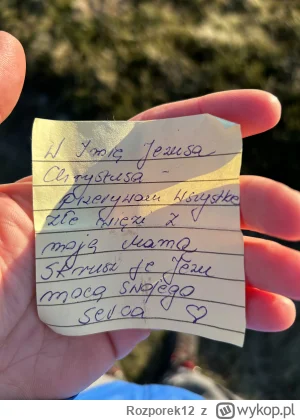 W Imię Jezusa
Chrystusa -
przerywam wszystkie
złe więzi z
moją Mamą
Skrusz je Jezu
mocą swojego
serca ♡
Rozporek12 z wykop.pl